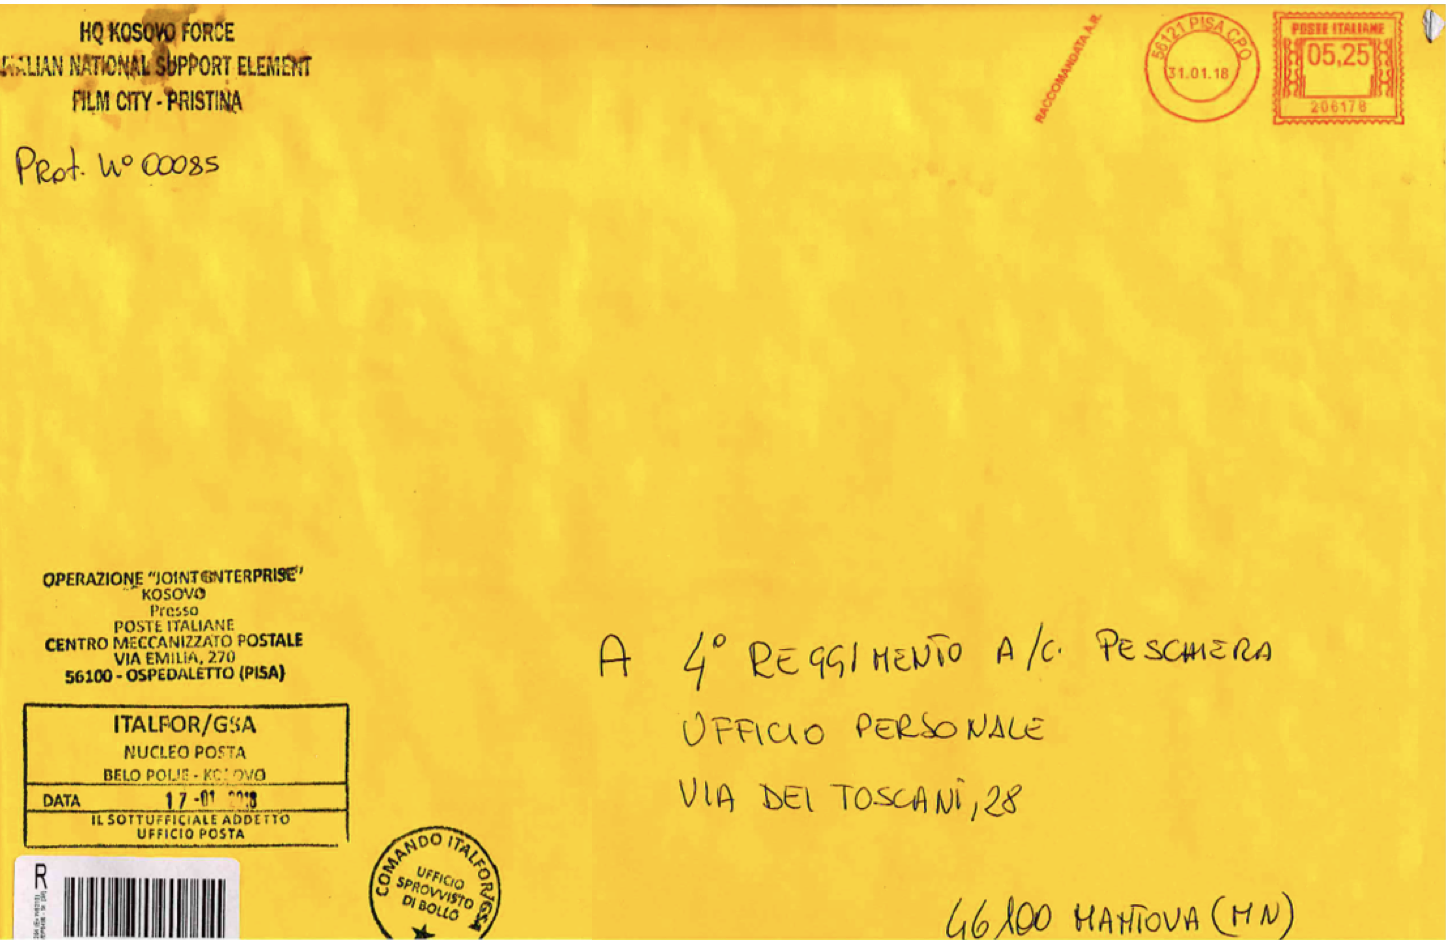 HQ KOSOVO FORCE
ITALIAN NATIONAL SUPPORT ELEMENT
FILM CITY - PRISTINA
Prot. N° 00085
RACCOMANDATA A.R.
56121 PISA CPO
31.01.18
POSTE ITALIANE
05,25
206178
OPERAZIONE "JOINT ENTERPRISE"
KOSOVO
Presso
POSTE ITALIANE
CENTRO MECCANIZZATO POSTALE
VIA EMILIA, 270
56100 - OSPEDALETTO (PISA)
ITALFOR/GSA
NUCLEO POSTA
BELO POLJE - KOSOVO
DATA 17-01 2018
IL SOTTUFFICIALE ADDETTO
UFFICIO POSTA
R
COMANDO ITALFOR/GSA
UFFICIO
SPROVVISTO
DI BOLLO
A 4° REGGIMENTO A/C. PESCHIERA
UFFICIO PERSONALE
VIA DEI TOSCANI, 28
46100 MANTOVA (MN)